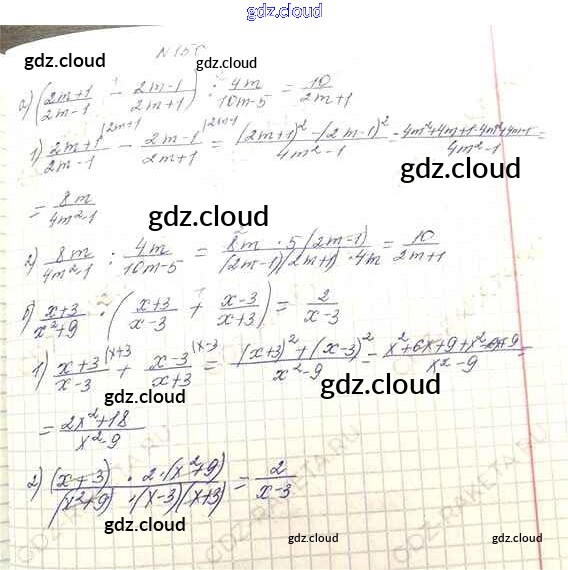 gdz.cloud
N 150
gdz.cloud gdz.cloud
а) (2m+1/2m-1 - 2m-1/2m+1) : 4m/10m-5 = 10/2m+1
gdz.cloud
1) 2m+1/2m-1 |2m+1 - 2m-1/2m+1 |2m-1 = (2m+1)²-(2m-1)²/4m²-1 = 4m²+4m+1-4m²+4m-1/4m²-1 =
gdz.cloud
= 8m/4m²-1
gdz.cloud
2) 8m/4m²-1 : 4m/10m-5 = 8m · 5(2m-1)/(2m-1)(2m+1) · 4m = 10/2m+1
gdz.cloud
б) x+3/x²+9 · (x+3/x-3 + x-3/x+3) = 2/x-3
gdz.cloud
1) x+3/x-3 |x+3 + x-3/x+3 |x-3 = (x+3)²+(x-3)²/x²-9 = x²+6x+9+x²-6x+9/x²-9 =
gdz.cloud
= 2x²+18/x²-9
gdz.cloud
2) (x+3) · 2·(x²+9)/(x²+9) · (x-3)(x+3) = 2/x-3
gdz.cloud
gdz.cloud gdz.cloud
GDZ-RAKETA.RU